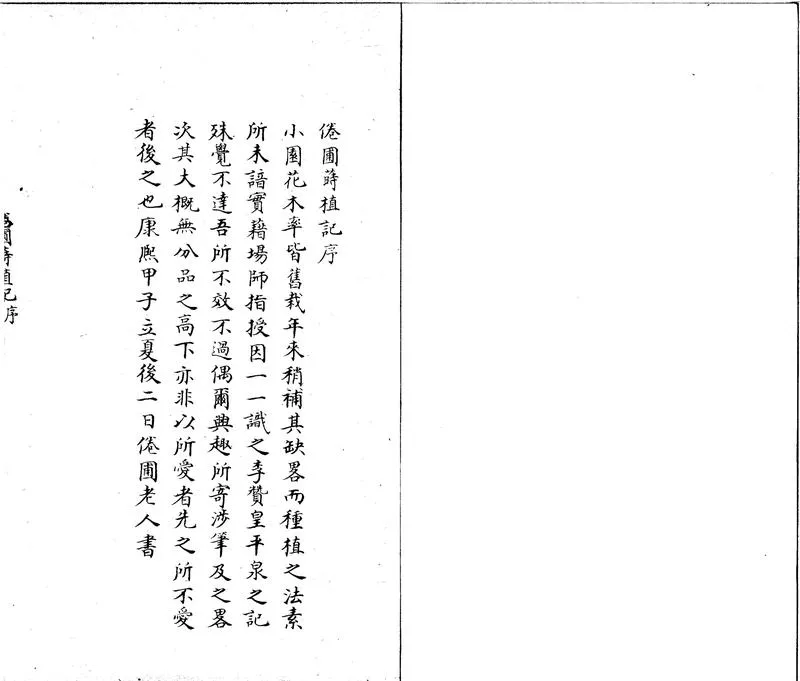 倦圃蒔植記序
小園花木率皆舊栽年來稍補其缺畧而種植之法素
所未諳實藉場師指授因一一識之李贊皇平泉之記
殊覺不達吾所不效不過偶爾興趣所寄涉筆及之畧
次其大概無分品之高下亦非以所愛者先之所不愛
者後之也康熙甲子立夏後二日倦圃老人書
圃蒔植記序